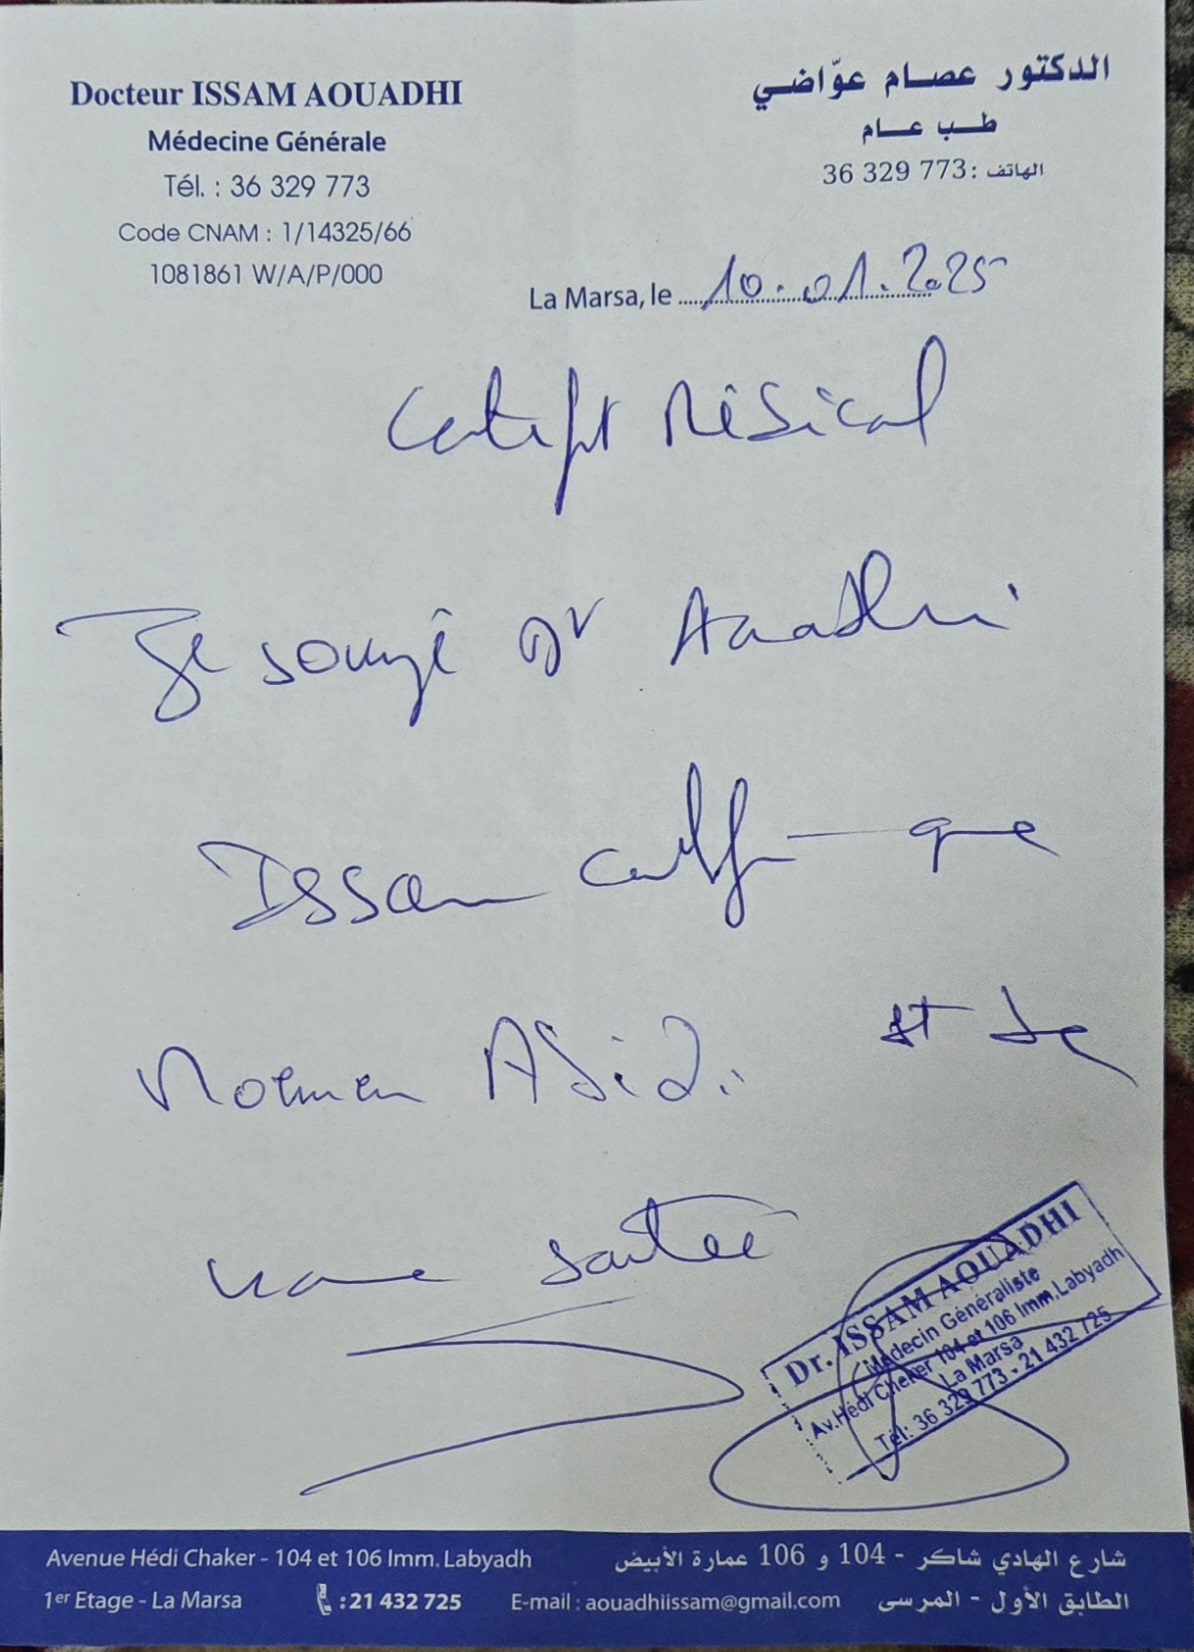 Docteur ISSAM AOUADHI
Médecine Générale
Tél. : 36 329 773
Code CNAM : 1/14325/66
1081861 W/A/P/000
الدكتور عصام عوّاضي
طب عام
الهاتف : 36 329 773
La Marsa, le 10.01.2025
Certificat Médical
Je soussigné Dr Aouadhi
Issam certifie que
Abidi est
santé
Dr. ISSAM AOUADHI
Médecin Généraliste
Av.Hédi Cheker 104 et 106 Imm.Labyadh
La Marsa
Tél: 36 329 773 - 21 432 725
Avenue Hédi Chaker - 104 et 106 Imm. Labyadh
1er Etage - La Marsa
: 21 432 725
E-mail : aouadhiissam@gmail.com
شارع الهادي شاكر - 104 و 106 عمارة الأبيض
الطابق الأول - المرسى